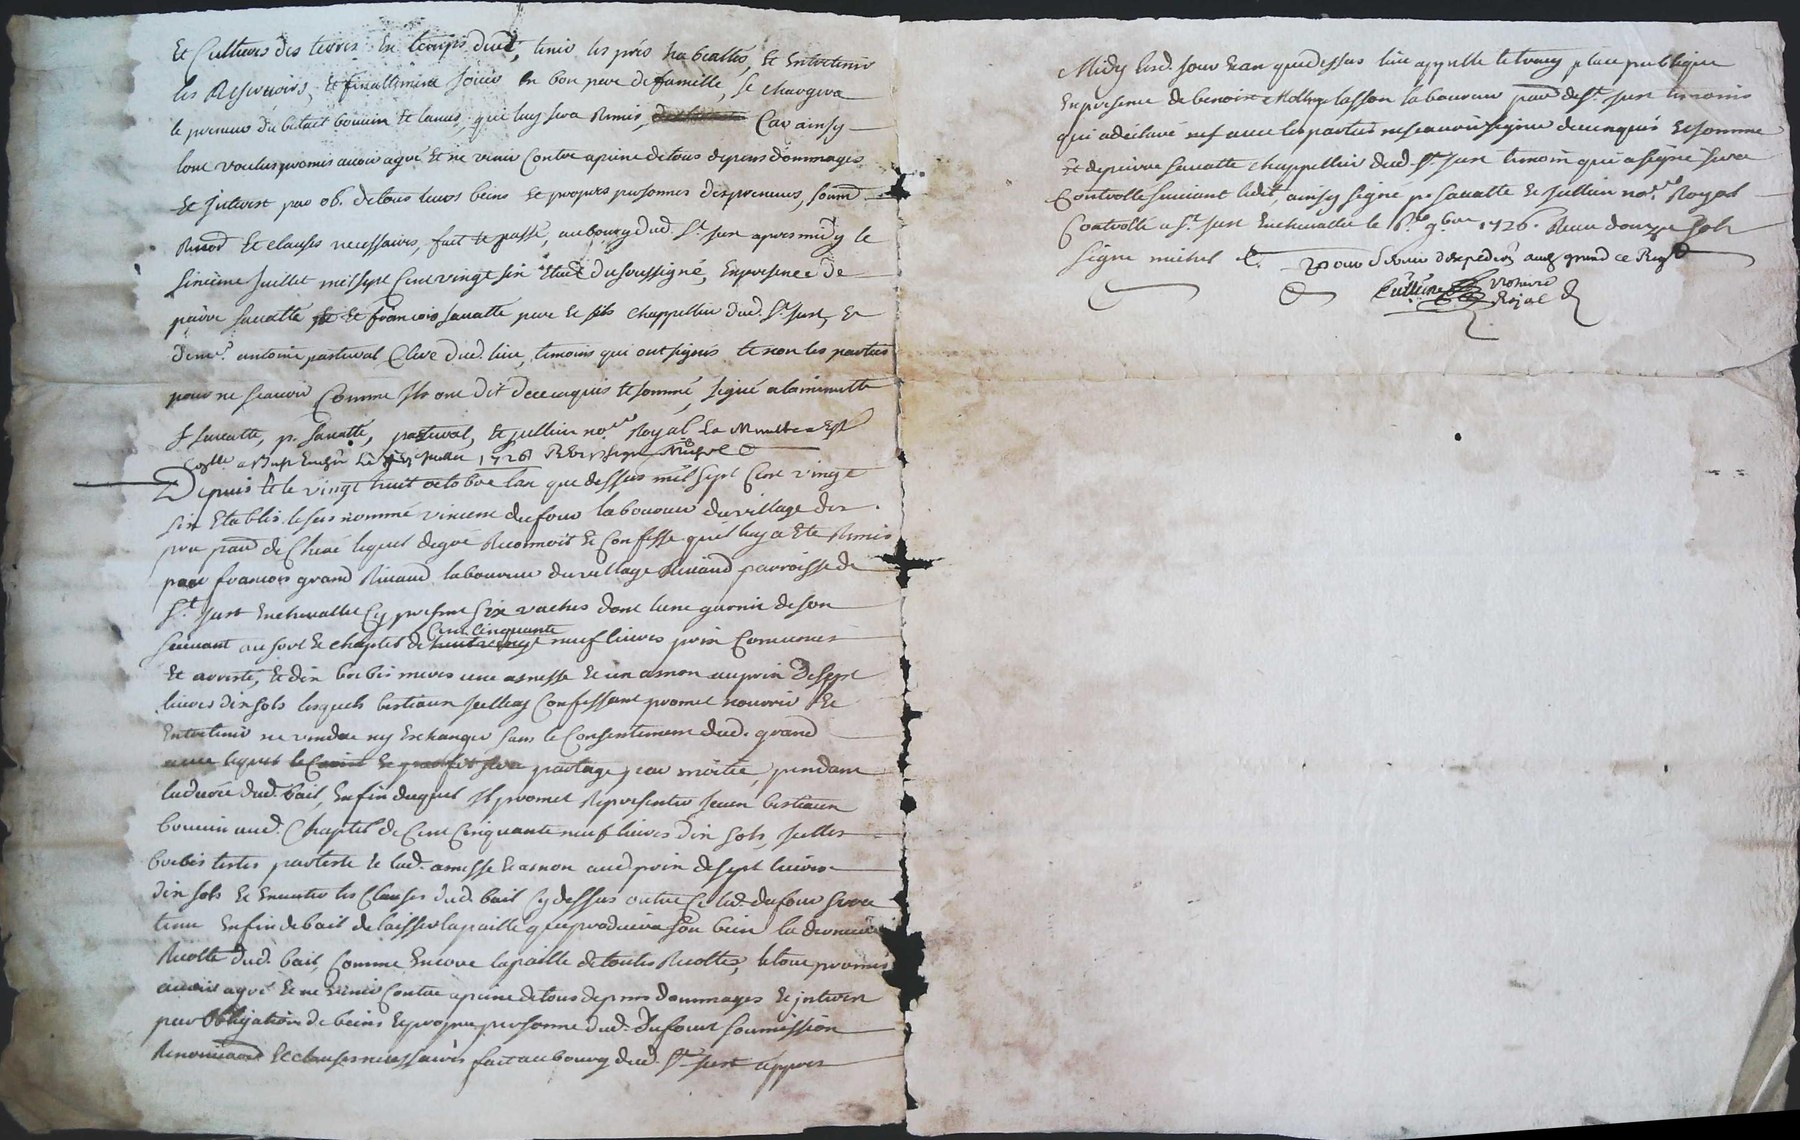 Et Cultures des terres En temps deub, tenir les prés en
les Reservoirs, et finallement jouir en bon pere de famille, se chargera
le preneur du betail bouvin et lanus, que luy sera Remis, Car ainsy
tout voulus promis avoir agré Et ne venir Contre a peine de tous depens dommages
Et Interest par ob. de tous leurs biens et propres personnes des preneurs, soumd
Renod Et clauses necessaires, fait et passé, au bourg dud. St. Just apres midy le
sixieme Juillet mil sept Cent vingt six Etude du soussigné, En presence de
pierre sauatte Et françois sauatte pere et fils chappellier dud. St. Just, et
de mr. antoine pastural Clerc dud. lieu, temoins qui ont signés et non les parties
pour ne scauoir Comme Ils ont dit de ce enquis et sommé, signé a la minutte
f sauatte, p. sauatte, pastural, et Jullien nore. Royal La Minutte Est
a St Just En Juillet 1726
Depuis et le vingt huit octobre l'an que dessus mil sept Cent vingt
six Etablis le sus nommé vincent dufour laboureur du village des
par de lequel de gré Reconnoit et Confesse qu'il luy a Eté Remis
par francois grand Renaud laboureur du village Renaud parroisse de
St. Just En chevallet Cy present Six vaches dont l'une garnie de son
suivant au sort et cheptel de Cent Cinquante neuf livres prix Convenus
Et arresté, et dix brebis meres une asnesse et un asnon au prix de sept
livres dix sols lesquels bestiaux Confessant promet nourrir Et
Entretenir ne vendre ny Eschanger sans le Consentement dud. grand
avec lequel le et sera partagé par moitié, pendant
la durée dud. bail, En fin duquel Il promet Representer Iceux bestiaux
bouvin aud. Chaptel de Cent Cinquante neuf livres dix sols, Icelles
brebis testes par teste et lad. asnesse et asnon aud prix de sept livres
dix sols et Executer les Clauses dud. bail Cy dessus outre Ce led. dufour sera
tenu En fin de bail de laisser la paille que produira son bien la derniere
Recolte dud. bail, Comme Encore la paille de toutes Recoltes, le tout promis
avoir agré et ne venir Contre a peine de tous depens dommages et interest
par Obligation de biens et propre personne dud. Dufour soumission
Renonciaond et clauses necessaires fait au bourg dud. St. Just apres
Midy lesd. jour et an que dessus lieu appellé le place publique
En presence de benoist lasson laboureur par de St. Just temoin
qui a declaré ne avec les parties ne scauoir signer de ce enquis et sommé
et de pierre sauatte chappellier dud. St. Just temoin qui a signé sera
Controllé suivant ledit, ainsy signé p. sauatte et Jullien nore. Royal
Controllé a St. Just En chevallet le 6e. 9bre 1726. Receu douze sols
signé michel
Pour
Jullien Notaire
Royal